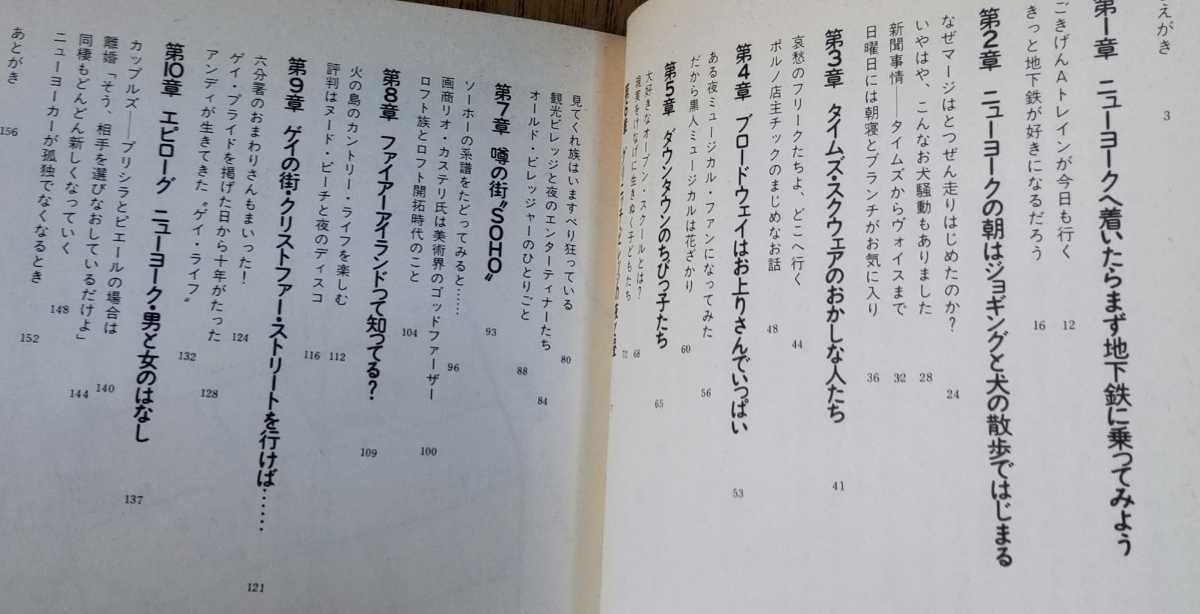 えがき 3
第1章 ニューヨークへ着いたらまず地下鉄に乗ってみよう
ごきげんAトレインが今日も行く 12
きっと地下鉄が好きになるだろう 16
第2章 ニューヨークの朝はジョギングと犬の散歩ではじまる
なぜマージはとつぜん走りはじめたのか？ 24
いやはや、こんなお犬騒動もありました 28
新聞事情——タイムズからヴォイスまで 32
日曜日には朝寝とブランチがお気に入り 36
第3章 タイムズ・スクウェアのおかしな人たち 41
哀愁のフリークたちよ、どこへ行く 44
ポルノ店主チックのまじめなお話 48
第4章 ブロードウェイはお上りさんでいっぱい 53
ある夜ミュージカル・ファンになってみた 56
だから黒人ミュージカルは花ざかり 60
第5章 ダウンタウンのちびっ子たち 65
大好きなオープン・スクールとは？ 68
現実をけなげに生きぬく子どもたち 72
見てくれ族はいますべり狂っている 80
観光ビレッジと夜のエンターティナーたち 84
オールド・ビレッジャーのひとりごと 88
第7章 噂の街〝SOHO〟 93
ソーホーの系譜をたどってみると…… 96
画商リオ・カステリ氏は美術界のゴッドファーザー 100
ロフト族とロフト開拓時代のこと 104
第8章 ファイアーアイランドって知ってる？ 109
火の島のカントリー・ライフを楽しむ 112
評判はヌード・ビーチと夜のディスコ 116
第9章 ゲイの街・クリストファー・ストリートを行けば…… 121
六分署のおまわりさんもまいった！ 124
ゲイ・プライドを掲げた日から十年がたった 128
アンディが生きてきた〝ゲイ・ライフ〟 132
第10章 エピローグ ニューヨーク・男と女のはなし 137
カップルズ——プリシラとピエールの場合は 140
離婚「そう、相手を選びなおしているだけよ」 144
同棲もどんどん新しくなっていく 148
ニューヨーカーが孤独でなくなるとき 152
あとがき 156